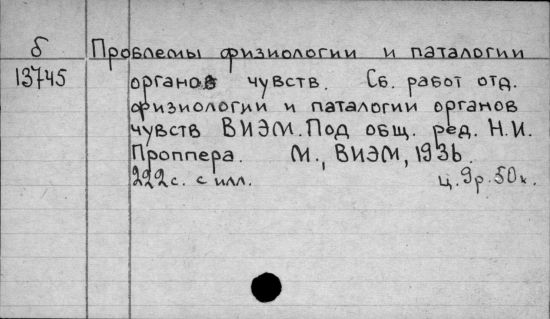 б Проблемы физиологии и паталогии
13745 органов чувств. Сб. работ отд.
физиологии и паталогии органов
чувств ВИЭМ. Под общ. ред. Н.И.
Проппера. М., ВИЭМ, 1936.
222с. с илл. ц. 9р. 50к.